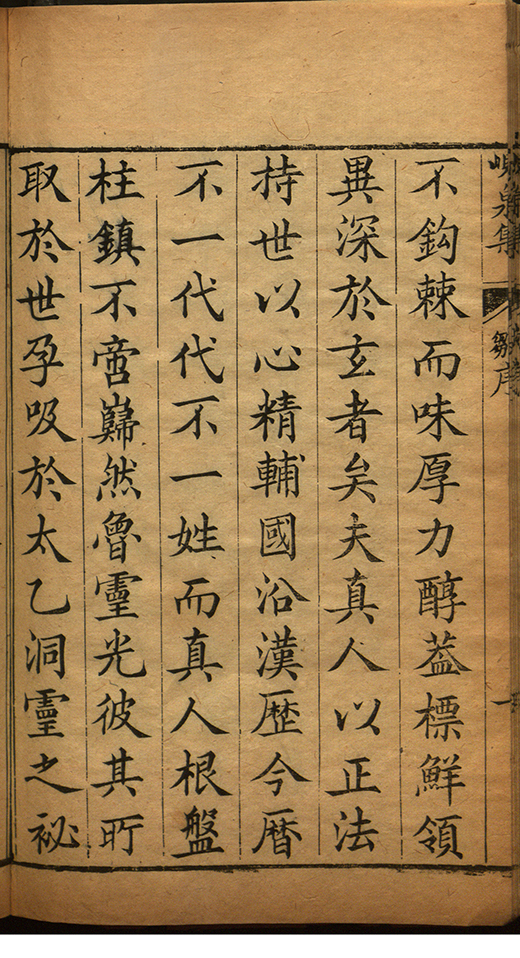 峴泉集 鄒序
不鈎棘而味厚力醇葢標鮮領
異深於玄者矣夫真人以正法
持世以心精輔國沿漢歷今曆
不一代代不一姓而真人根盤
柱鎮不啻巋然魯靈光彼其所
取於世孕吸於太乙洞靈之祕